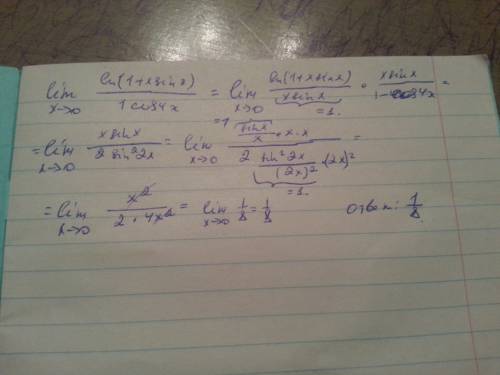 lim x→0 ln(1+xsinx) / 1 cos4x = lim x→0 ln(1+xsinx) / xsinx =1. · xsinx / 1-cos4x =
= lim x→0 xsinx / 2 sin²2x = lim x→0 =1 sinx / x · x · x / 2 sin²2x / (2x)² =1. · (2x)² =
= lim x→0 x² / 2 · 4x² = lim x→0 1/8 = 1/8 ответ: 1/8.